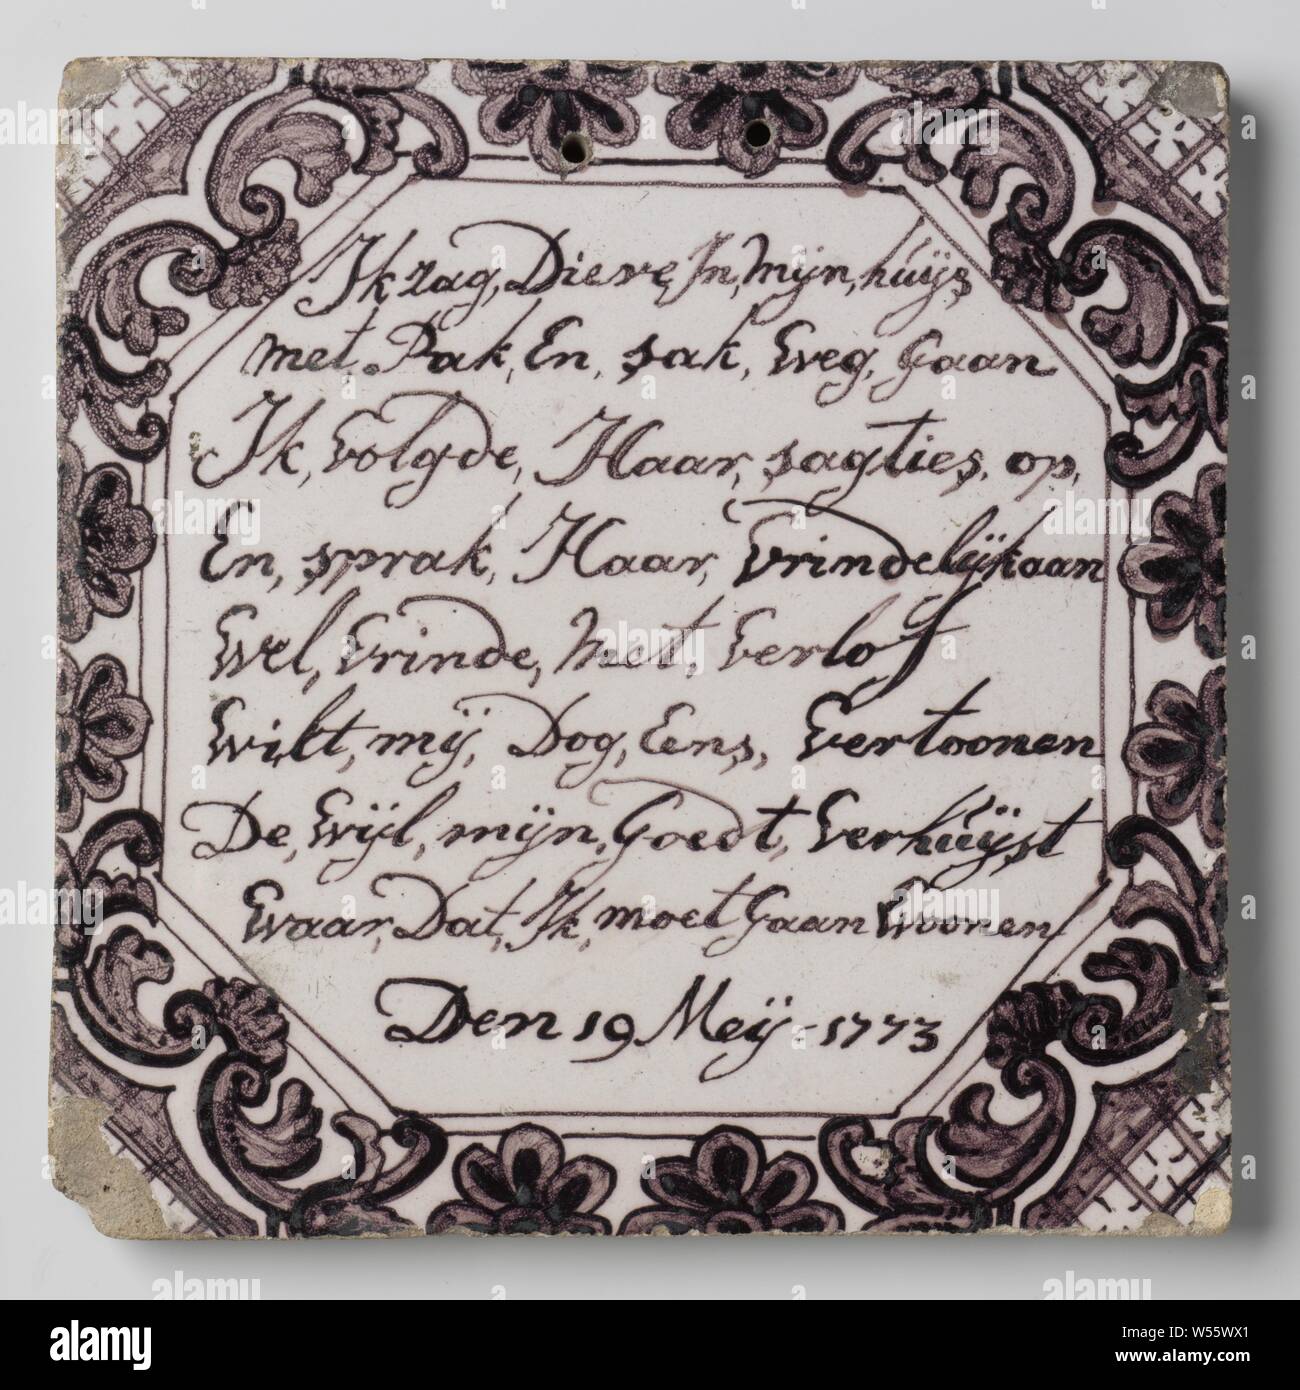 Ik, zag, Dieve, In, Mijn, huijs
met Pak, En, sak, Weg, Gaan
Ik, Volgde, Haar, sagties, op,
En, sprak, Haar, Vrindelijk aan
Wel, Vrinde, Met, Verlof
Wilt, mij, Dog, Eens, Vertoonen
De, Wijl, mijn, Goedt, Verhuijst
Waar, Dat, Ik, moet Gaan Woonen
Den 19 Meij - 1773
alamy
www.alamy.com
W55WX1